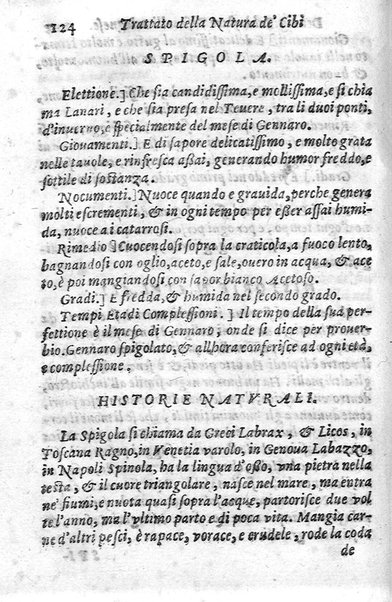 124 Trattato della Natura de' Cibi
SPIGOLA.
Elettione.] Che sia candidissima, e mollissima, e si chia
ma Lanari, e che sia presa nel Teuere, tra li duoi ponti,
d'inuerno, e specialmente del mese di Gennaro.
Giouamenti.] E di sapore delicatissimo, e molto grata
nelle tauole, e rinfresca assai, generando humor freddo, e
sottile di sostanza.
Nocumenti.] Nuoce quando e grauida, perche genera
molti escrementi, & in ogni tempo per esser assai humi-
da, nuoce ai catarrosi.
Rimedio] Cuocendosi sopra la craticola, a fuoco lento,
bagnandosi con oglio, aceto, e sale, ouero in acqua, & ace
to, è poi mangiandosi con sapor bianco Acetoso.
Gradi.] E fredda, & humida nel secondo grado.
Tempi Etadi Complessioni.] Il tempo della sua per-
fettione è il mese di Gennaro, onde si dice per prouer-
bio. Gennaro spigolato, & allhora conferisce ad ogni età,
e complessione.
HISTORIE NATVRALI.
La Spigola si chiama da Greci Labrax, & Licos, in
Toscana Ragno, in Venetia varolo, in Genoua Labazzo,
in Napoli Spinola, ha la lingua d'osso, vna pietra nella
testa, & il cuore triangolare, nasce nel mare, ma entra
ne' fiumi, e nuota quasi sopra l'acque, partorisce due vol
te l'anno, ma l'vltimo parto e di poca vita. Mangia car-
ne d'altri pesci, è rapace, vorace, e crudele, rode la coda
de